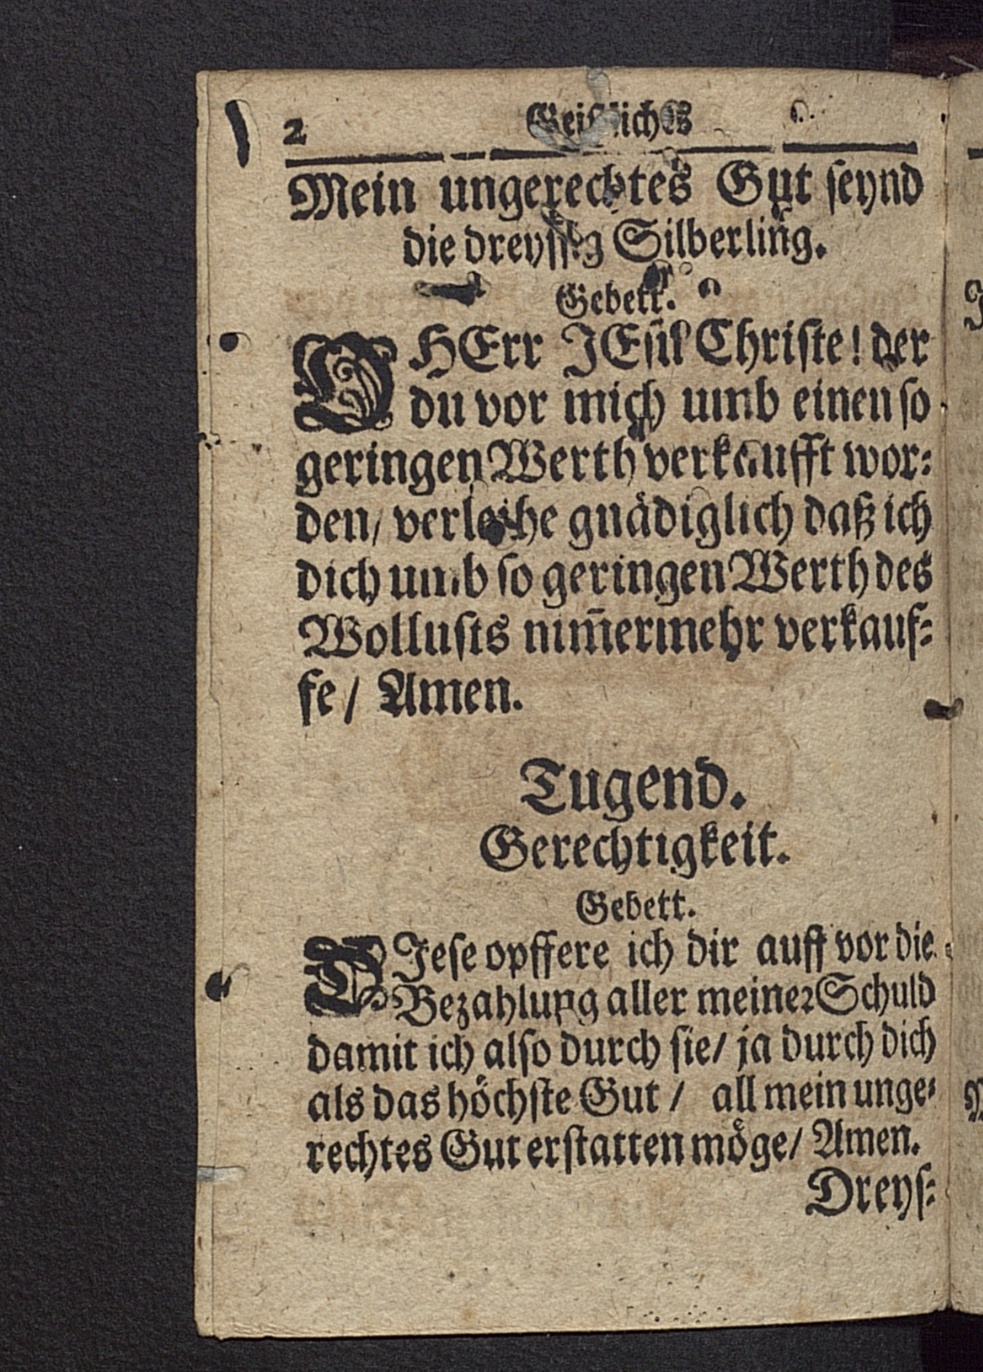 2 Geistliches
Mein ungerechtes Gut seynd
die dreyssig Silberling.
Gebett.
O HErr JEsu Christe! der
du vor mich umb einen so
geringen Werth verkaufft wor⸗
den/ verleihe gnädiglich daß ich
dich umb so geringen Werth des
Wollusts nim̄ermehr verkauf⸗
fe/ Amen.
Tugend.
Gerechtigkeit.
Gebett.
DJese opffere ich dir auff vor die
Bezahlung aller meiner Schuld
damit ich also durch sie/ ja durch dich
als das höchste Gut / all mein unge⸗
rechtes Gut erstatten möge/ Amen.
Dreys⸗